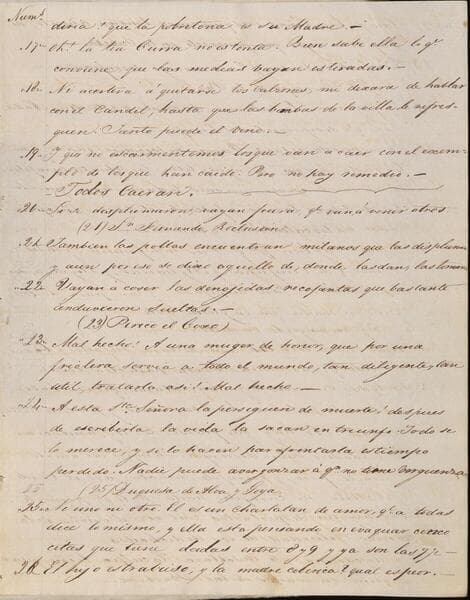 Num.s
diria? que la pobretona es su Madre.—
17.- Oh! la tia Curra no es tonta. Bien sabe ella lo q.e
conviene que las medias vayan estiradas.—
18. Ni acertira á quitarse los calzones, ni dexara de hablar
con el Candil, hasta que las bombas de la villa le refres-
quen. Tanto puede el vino.—
19. Y que no escarmentemos los que van a caer con el exem-
plo de los que han caido. Pero no hay remedio.—
Todos Caeran.
20- Si se desplumaron, vayan fuera, q.e van á venir otros
(21) S.n Fernando,
21. Tambien las pollas encuentran milanos que las desplumen
y aun por eso se dixo aquello de, donde las dan, las toman
22. Vayan á coser las denojedas, recojanlas que bastante
anduvieron sueltas.—
(23) Perico el Coxo)
23.- Mal hecho! A una muger de honor, que por una
friolera servia a todo el mundo, tan diligente, tan
util, tratarla asi! Mal hecho.—
24. A esta S.ta Señora la persiguen de muerte! despues
de escribirla la vida la sacan en triunfo. Todo se
lo merece, y si lo hacen por afrentarla es tiempo
perdido. Nadie puede avergonzar á q.n no tiene verguenza
25 (25) Duquesa de Alva y Goya
25. Ni uno ni otro. El es un charlatan de amor, q.e a todas
dice lo mismo, y ella esta pensando en evaquar cinco
citas que tiene dadas entre 8 y 9 y ya son las 7½—
26. El hijo es trabieso, y la madre colerica? qual es peor.—